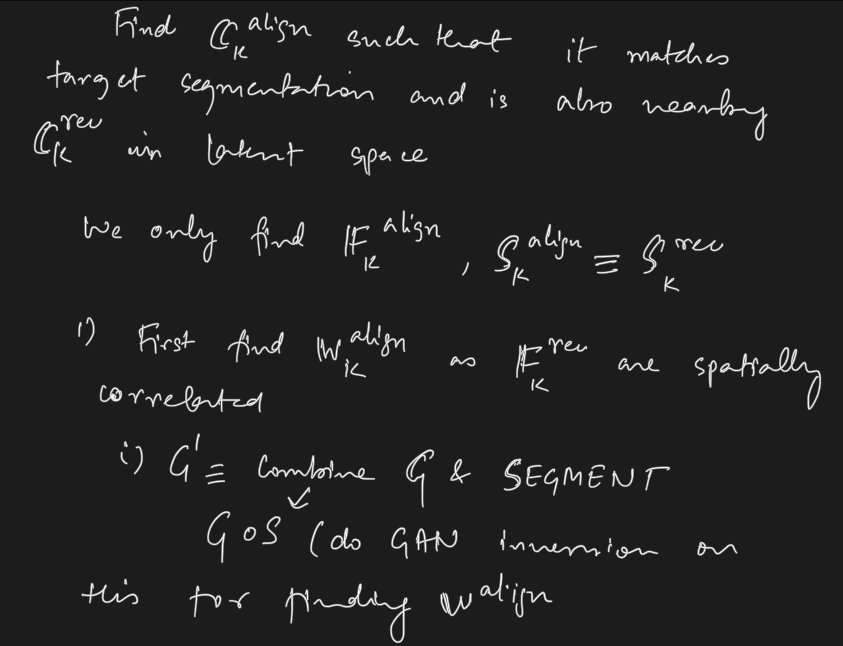 Find C_K^align such that it matches
target segmentation and is also nearby
C_K^rec in latent space
We only find F_K^align , S_K^align ≡ S_K^rec
1) First find W_K^align as F_K^rec are spatially
correlated
i) G' ≡ Combine G & SEGMENT
GoS (do GAN inversion on
this for finding w^align